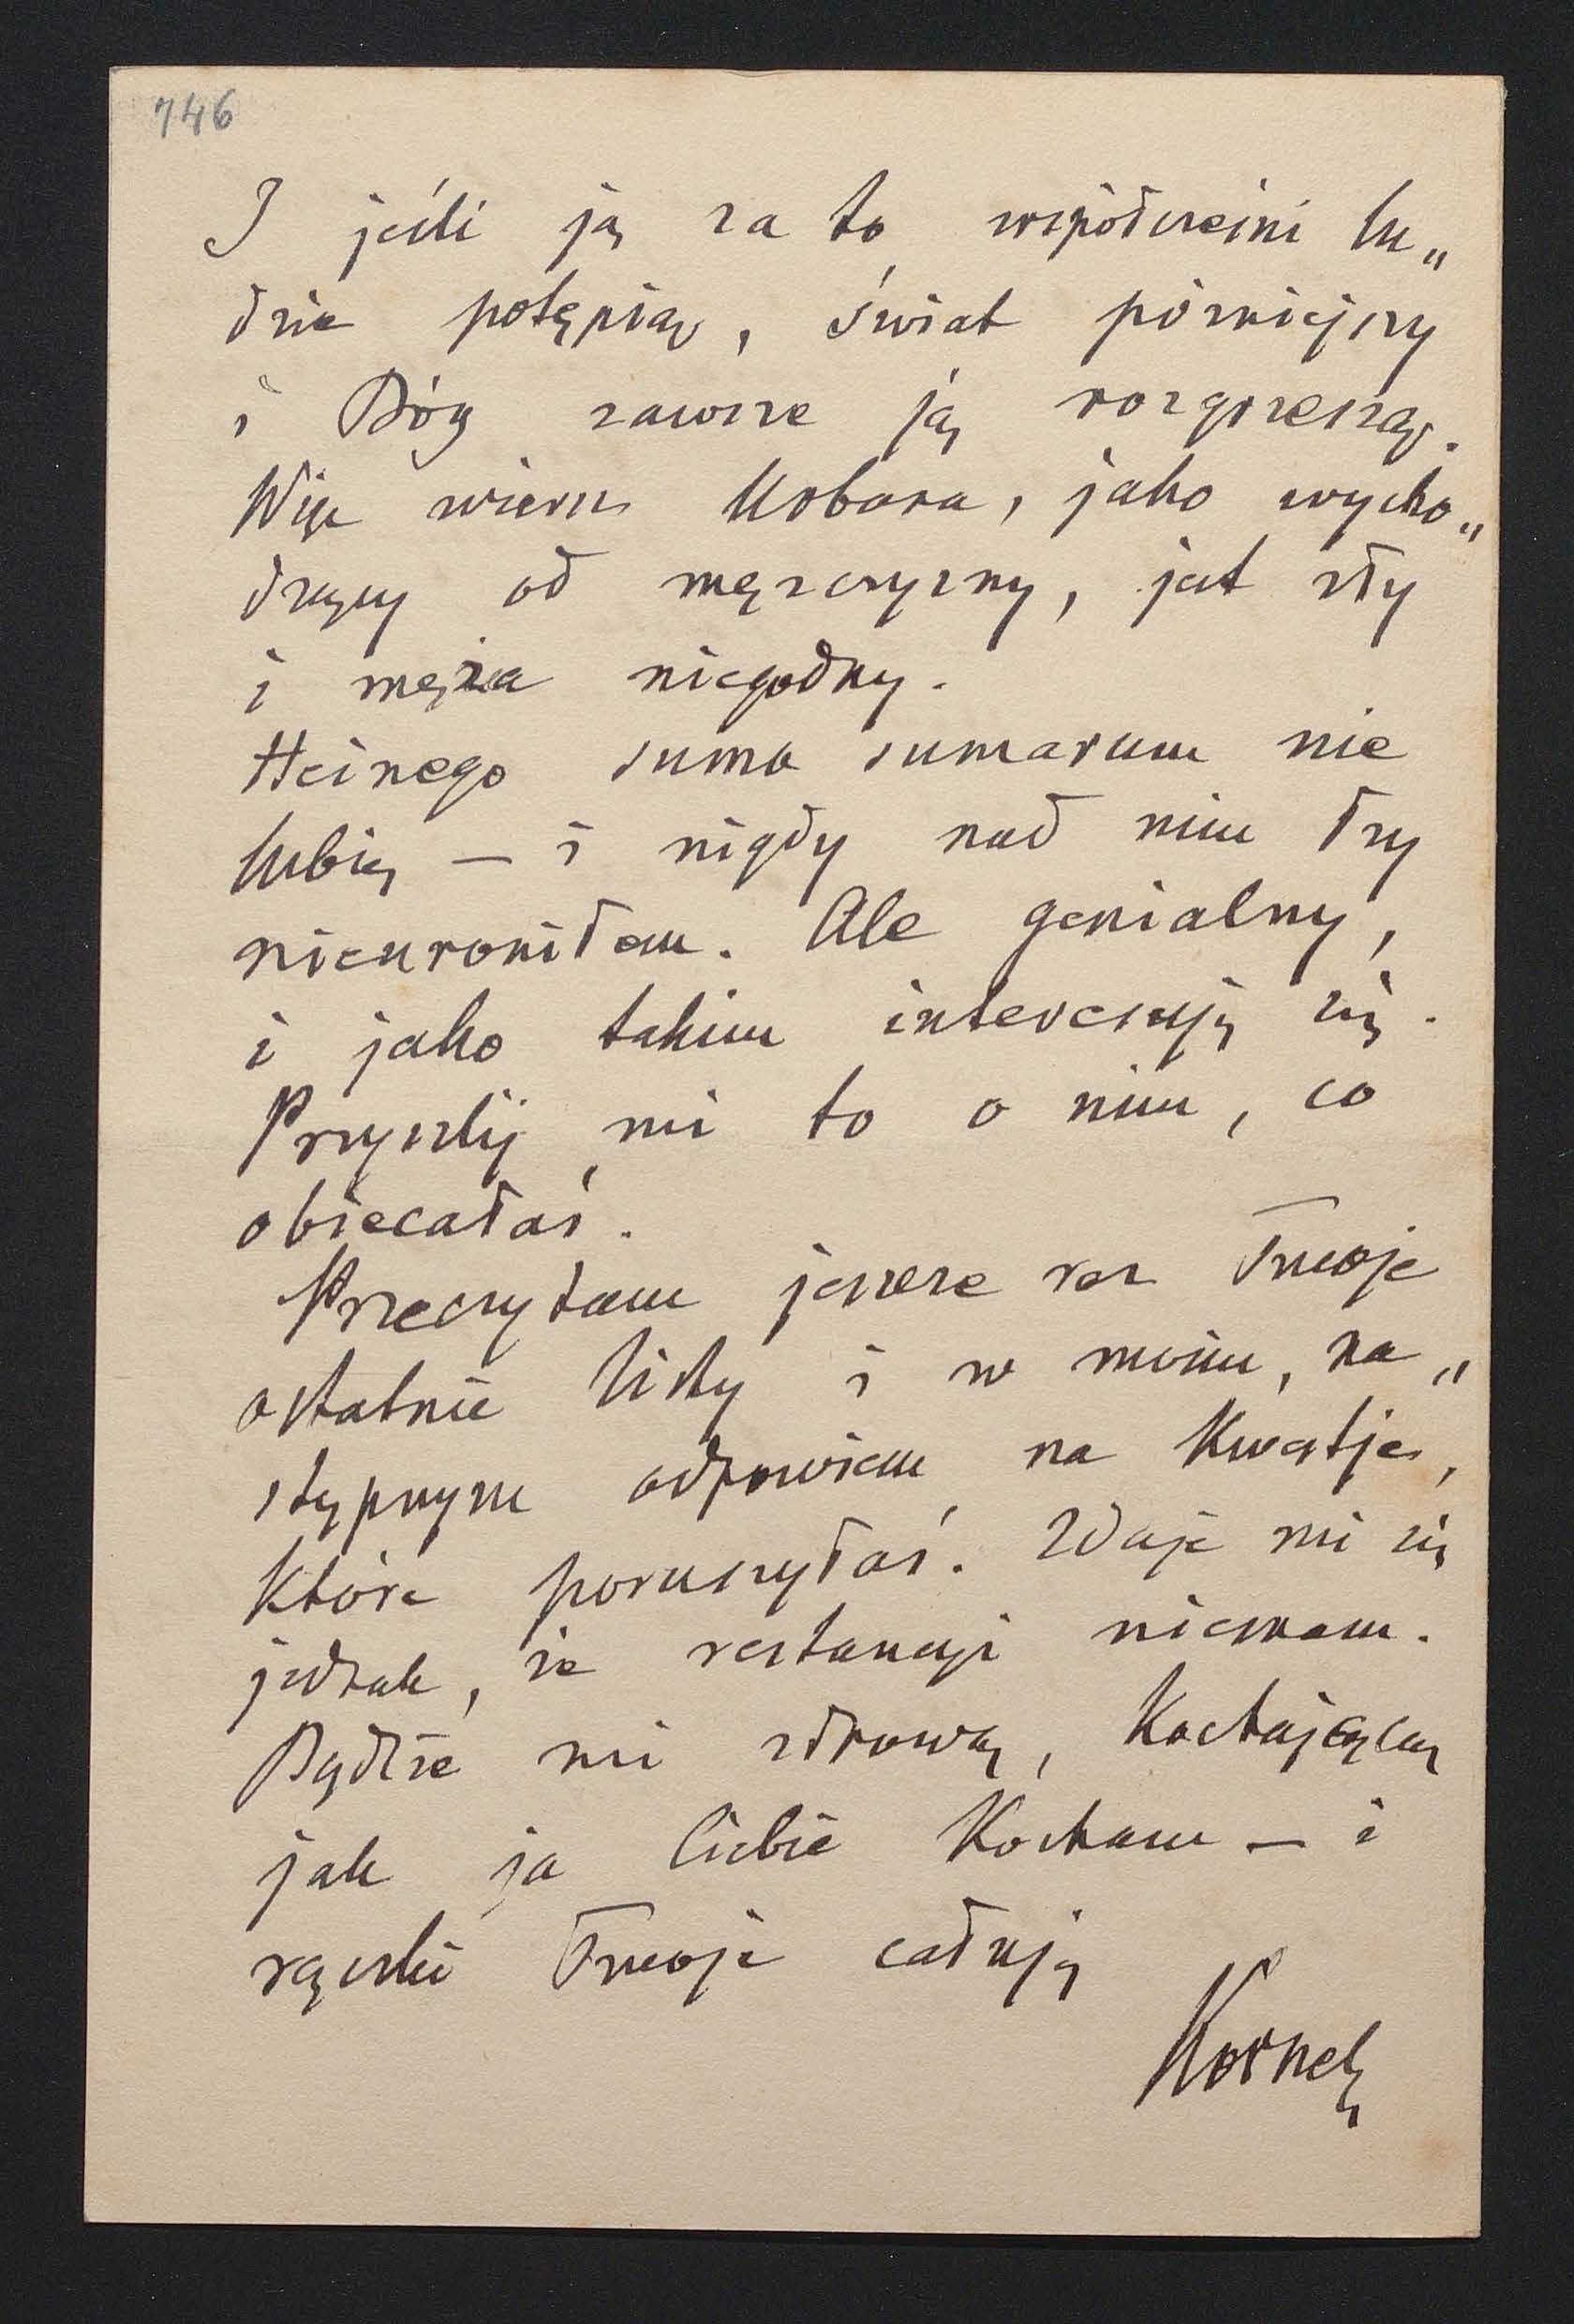 746
I jeśli ją za to współcześni lu„
dzie potępiają, świat późniejszy
i Bóg zawsze ją rozgrzeszają.
Więc wiersz Mrbora, jako wycho„
dzący od mężczyzny, jest zły
i męża niegodny.
Heinego suma sumarum nie
lubię — i nigdy nad nim łzy
nieuroniłem. Ale genialny,
i jako takim interesuję się.
Przyszlij mi to o nim, co
obiecałaś.
Przeczytam jeszcze raz Twoje
ostatnie listy i w moim, na„
stępnym odpowiem na kwestje,
które poruszyłaś. Zdaje mi się
jednak, że restancji niemam.
Bądźże mi zdrową, kochającą
jak ja Ciebie kocham — i
rączki Twoje całuję
Kornel